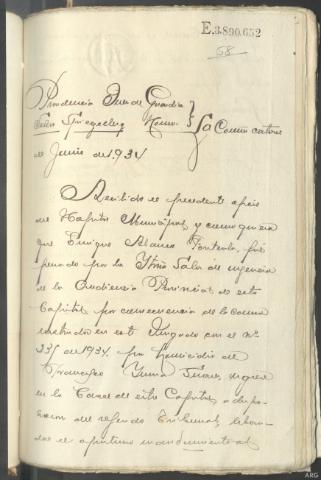 E.3890.652
68
Providencia Juez de Guardia
Señor Spiegelberg
La Coruña catorce
de Junio de 1.934
Recibido el precedente oficio
del Hospital Municipal y como quiera
que Enrique Blanco fué
por la Sala de urgencia
de la Audiencia Provincial de esta
Capital por consecuencia de la causa
instruida en este Juzgado con el nº
235 de 1934, por homicidio de
Francisco ingrese
en la Carcel de esta Capital a dispo-
sicion del referido Tribunal, libran-
dose el oportuno mandamiento al
ARG